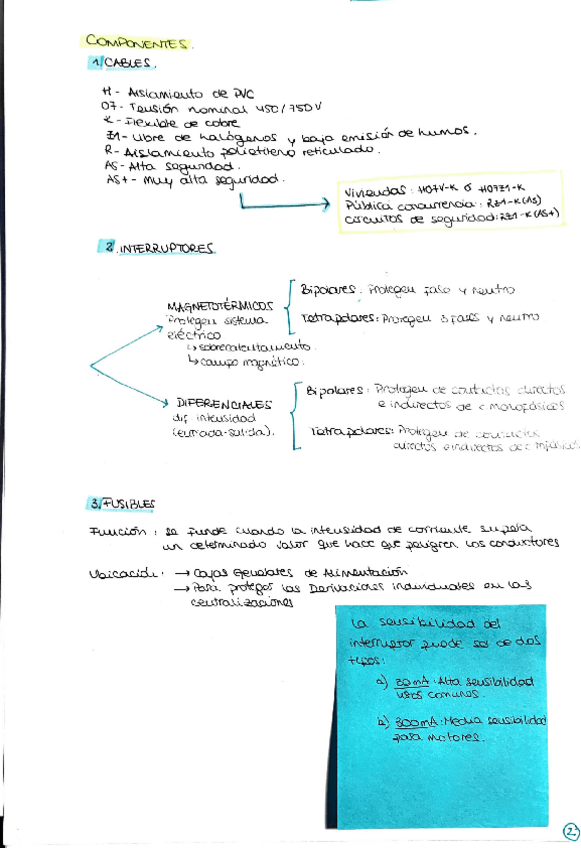 COMPONENTES.
1. CABLES.
H - Aislamiento de PVC
07 - Tensión nominal 450/750V
K - Flexible de cobre
Z1 - Libre de halógenos y baja emisión de humos.
R - Aislamiento polietileno reticulado.
AS - Alta seguridad.
AS+ - Muy alta seguridad.
Viviendas: H07V-K ó H07Z1-K
Pública concurrencia: RZ1-K(AS)
Circuitos de seguridad: RZ1-K(AS+)
2. INTERRUPTORES
MAGNETOTÉRMICOS
Protegen sistema
eléctrico
↳ sobrecalentamiento.
↳ campo magnético.
Bipolares: Protegen fase y neutro
Tetrapolares: Protegen 3 fases y neutro
DIFERENCIALES
dif intensidad
(entrada-salida).
Bipolares: Protegen de contactos directos
e indirectos de c monofásicos
Tetrapolares: Protegen de contactos
directos e indirectos de c trifásicos
3. FUSIBLES
Función: se funde cuando la intensidad de corriente supera
un determinado valor que hace que peligren los conductores
Ubicación: → Cajas Generales de Alimentación
→ Para proteger las Derivaciones individuales en las
centralizaciones
La sensibilidad del
interruptor puede ser de dos
tipos:
a) 30mA: Alta sensibilidad
usos comunes.
b) 300mA: Media sensibilidad
para motores.
2.